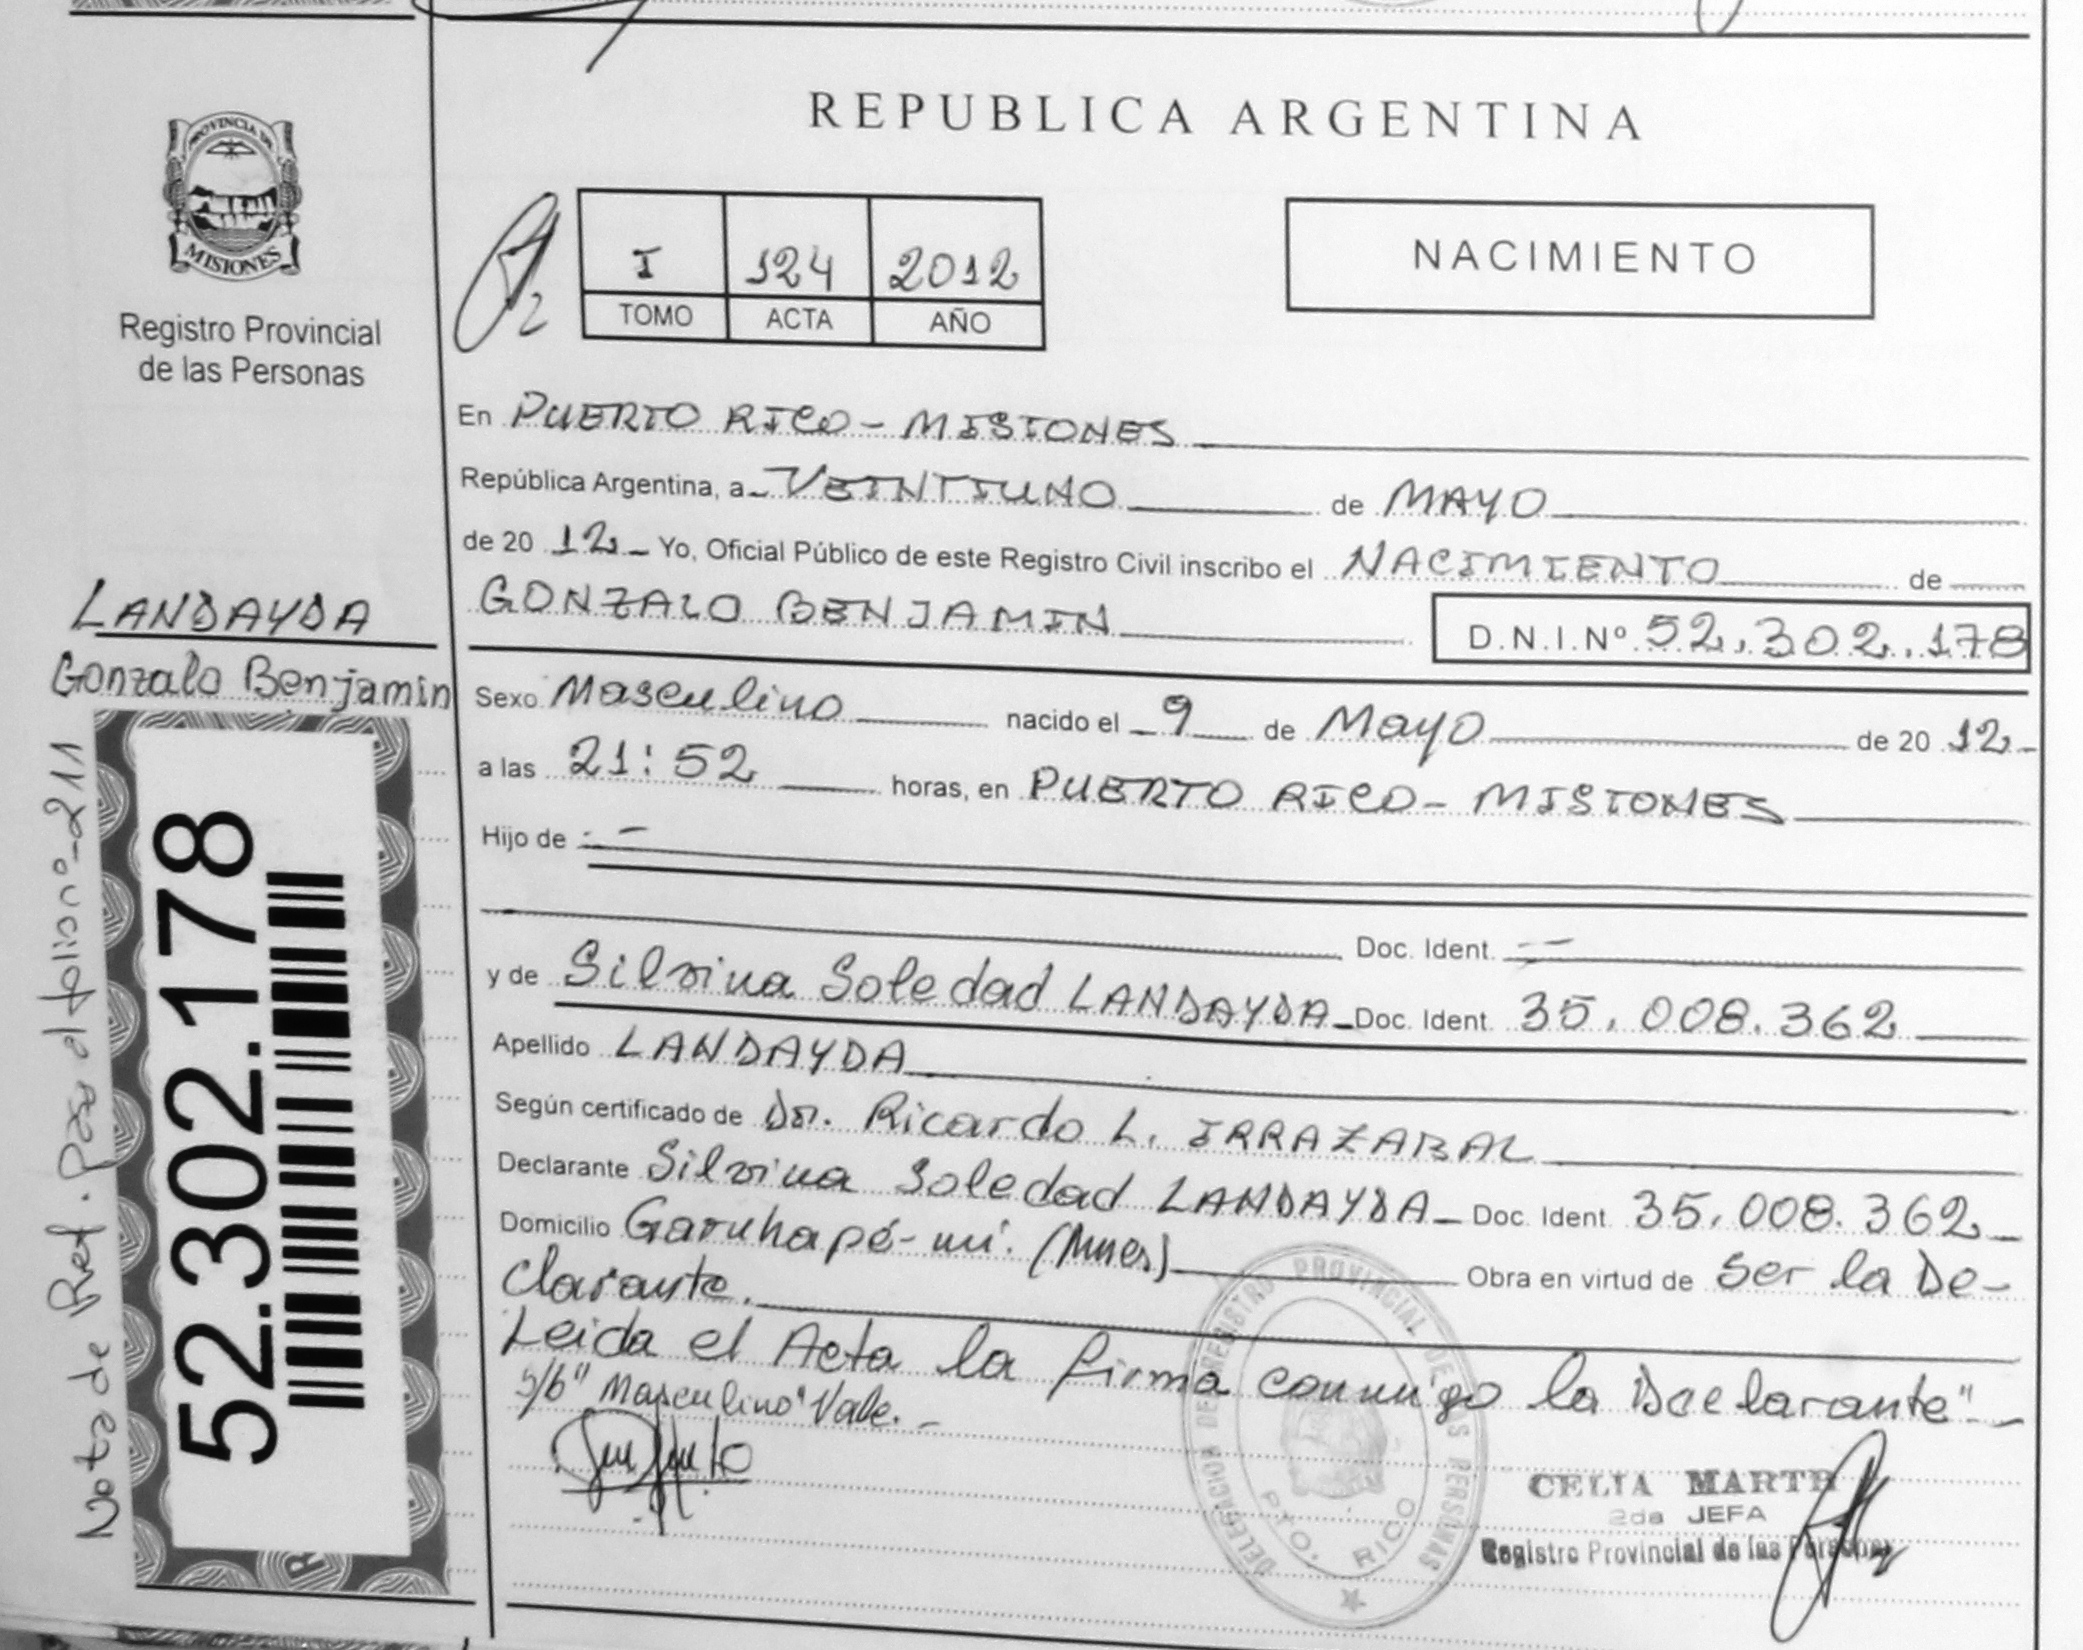 REPUBLICA ARGENTINA
PROVINCIA DE
MISIONES
Registro Provincial
de las Personas
I 124 2012
TOMO ACTA AÑO
NACIMIENTO
En PUERTO RICO - MISIONES
República Argentina, a VEINTIUNO de MAYO
de 20 12 Yo, Oficial Público de este Registro Civil inscribo el NACIMIENTO de
GONZALO BENJAMIN D.N.I.Nº 52.302.178
LANDAYDA
Gonzalo Benjamin
Nota de Ref. Pas al folio nº 211
52.302.178
Sexo Masculino nacido el 9 de Mayo de 20 12
a las 21:52 horas, en PUERTO RICO - MISIONES
Hijo de
Doc. Ident.
y de Silvina Soledad LANDAYDA Doc. Ident. 35.008.362
Apellido LANDAYDA
Según certificado de Dr. Ricardo L. IRRAZABAL
Declarante Silvina Soledad LANDAYDA Doc. Ident. 35.008.362
Domicilio Garuhapé-mí. (Mnes) Obra en virtud de Ser la De-
clarante.
Leida el Acta la firma conmigo la Declarante"
s/b "Masculino" Vale. -
DELEGACION DE REGISTRO PROVINCIAL DE LAS PERSONAS
PTO. RICO
CELIA MARTE
2da JEFA
Registro Provincial de las Personas